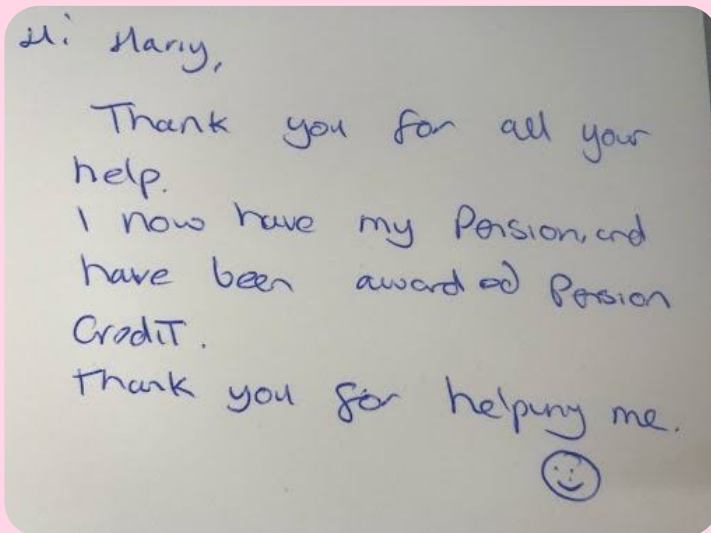 Hi Mary,
Thank you for all your
help.
I now have my Pension, and
have been awarded Pension
CrediT.
Thank you for helping me.